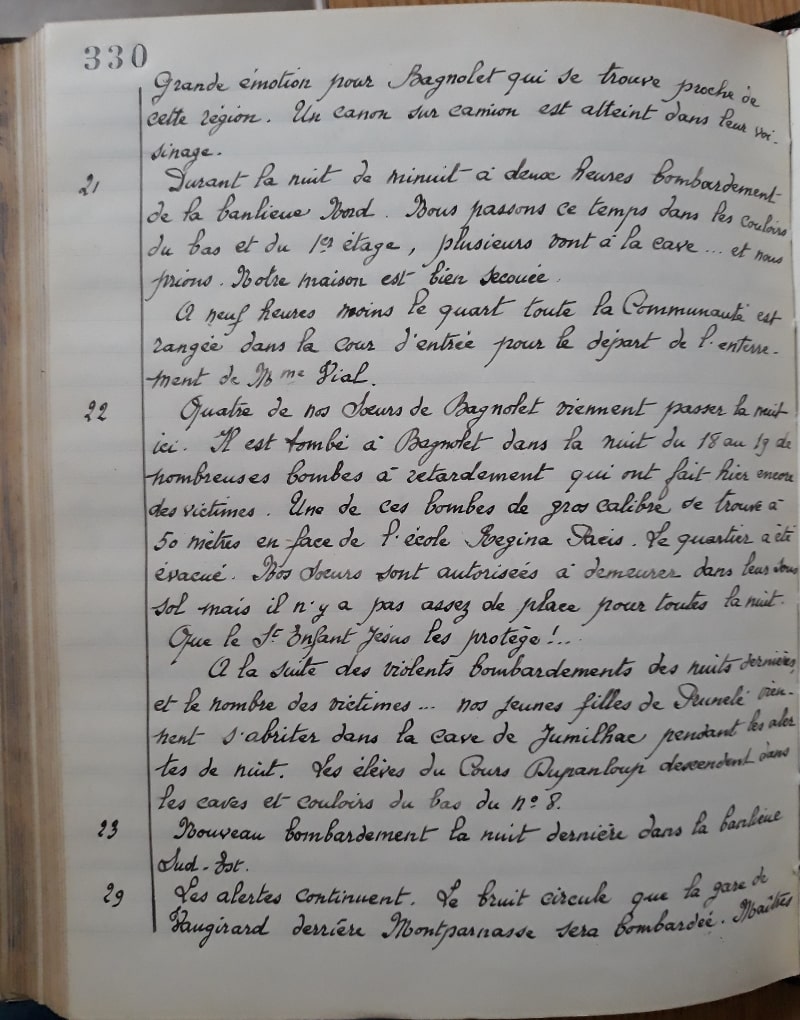 330
Grande émotion pour Bagnolet qui se trouve proche de
cette région. Un canon sur camion est atteint dans leur voi-
sinage.
21 Durant la nuit de minuit à deux heures bombardement
de la banlieue Nord. Nous passons ce temps dans les couloirs
du bas et du 1er étage, plusieurs vont à la cave ... et nous
prions. Notre maison est bien secouée.
A neuf heures moins le quart toute la Communauté est
rangée dans la cour d'entrée pour le départ de l'enterre-
ment de Mme Vial.
22 Quatre de nos Soeurs de Bagnolet viennent passer la nuit
ici. Il est tombé à Bagnolet dans la nuit du 18 au 19 de
nombreuses bombes à retardement qui ont fait hier encore
des victimes. Une de ces bombes de gros calibre se trouve à
50 mètres en face de l'école Regina Pacis. Le quartier a été
évacué. Nos Soeurs sont autorisées à demeurer dans leur sous
sol mais il n'y a pas assez de place pour toutes la nuit.
Que le St Enfant Jésus les protège !..
A la suite des violents bombardements des nuits dernières,
et le nombre des victimes ... nos jeunes filles de Prunelé vien-
nent s'abriter dans la cave de Jumilhac pendant les aler
tes de nuit. Les élèves du Cours Dupanloup descendent dans
les caves et couloirs du bas du n° 8.
23 Nouveau bombardement la nuit dernière dans la banlieue
Sud-Est.
29 Les alertes continuent. Le bruit circule que la gare de
Vaugirard derrière Montparnasse sera bombardée. Maîtres